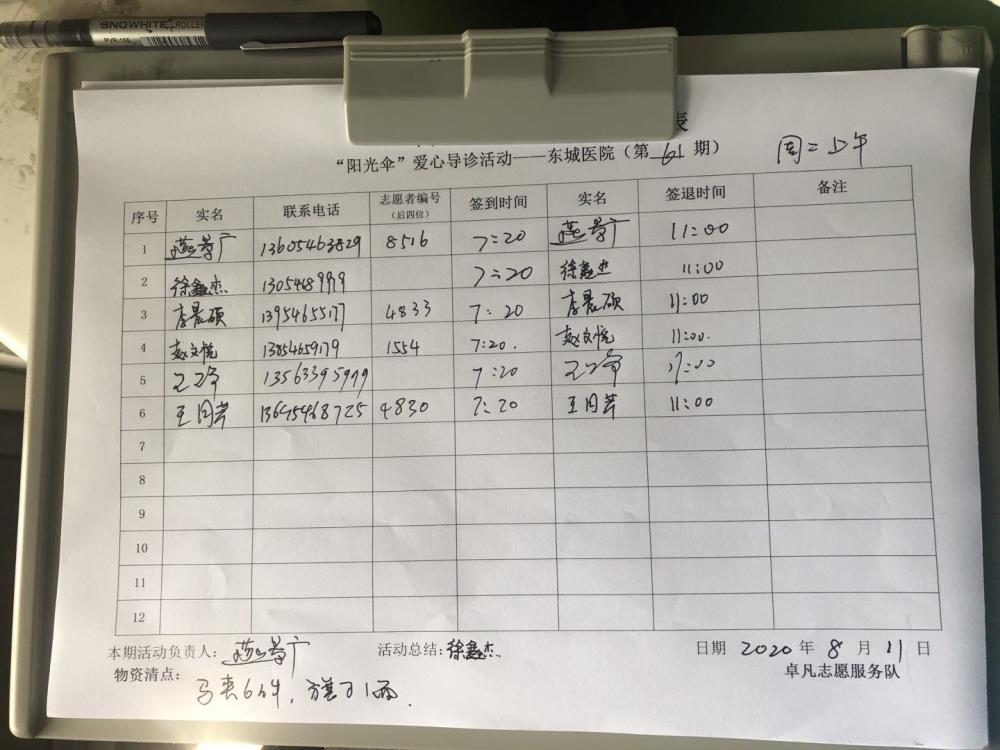 SNOWHITE ROLLER
PVR-155
表
“阳光伞”爱心导诊活动——东城医院（第 61 期） 周二上午
序号 实名 联系电话 志愿者编号（后四位） 签到时间 实名 签退时间 备注
1 燕景广 13605463829 8516 7:20 燕景广 11:00
2 徐鑫杰 130548999 7:20 徐鑫杰 11:00
3 李晨硕 13954655177 4833 7:20 李晨硕 11:00
4 赵文悦 13854659179 1554 7:20. 赵文悦 11:00.
5 13563395999 7:20 11:00
6 王月芹 13645468725 4830 7:20 王月芹 11:00
7
8
9
10
11
12
本期活动负责人：燕景广 活动总结：徐鑫杰 日期 2020 年 8 月 11 日
物资清点：马夹6件，旗子1面. 卓凡志愿服务队